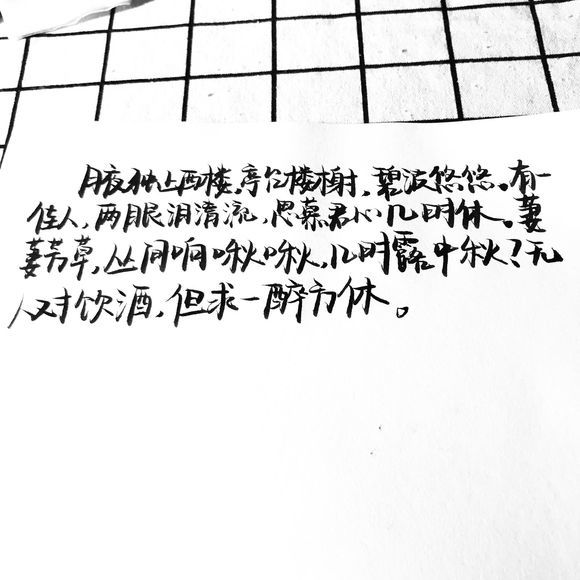 月夜独上西楼，亭台楼榭，碧波悠悠。有一
佳人，两眼泪清流，思慕君心几时休。萋
萋芳草，丛间响啾啾，几时露中秋？无
人对饮酒，但求一醉方休。